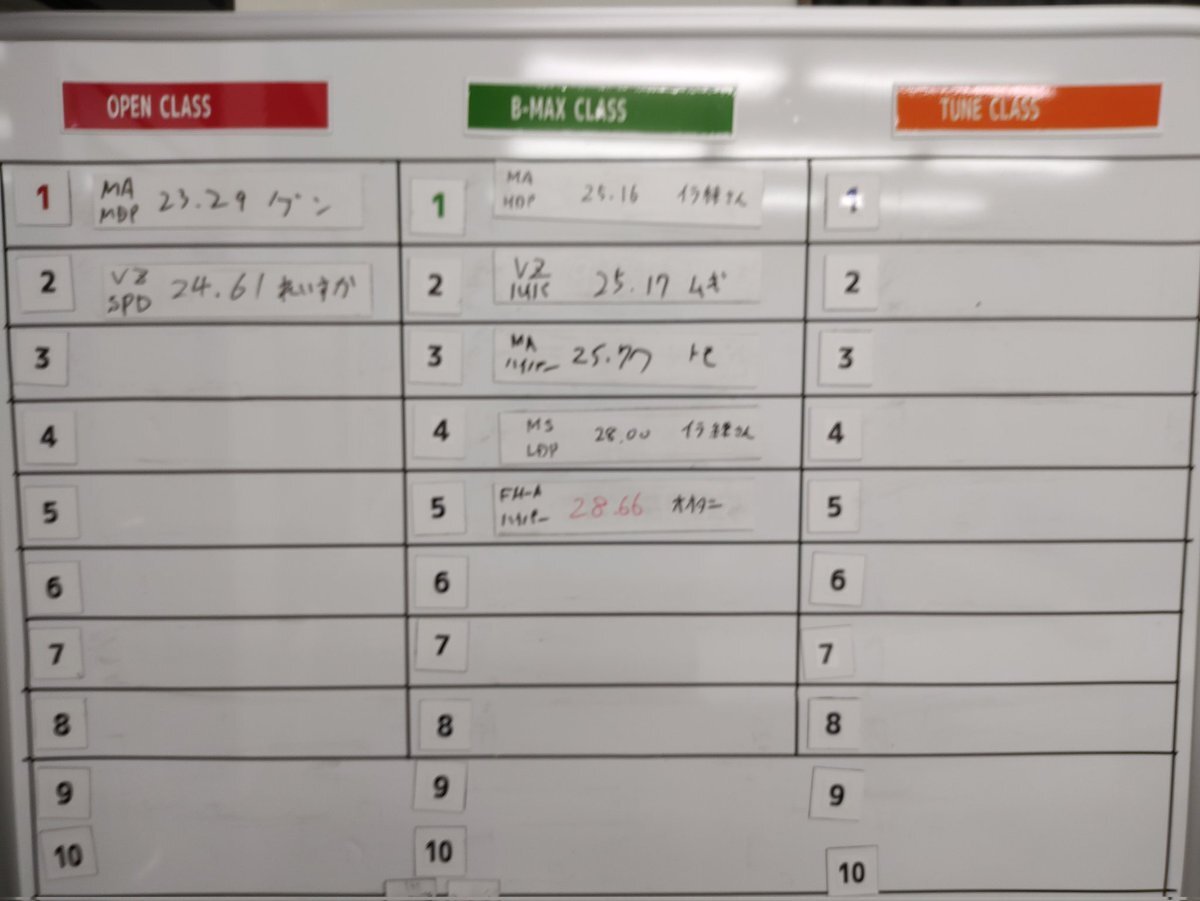 OPEN CLASS
B-MAX CLASS
TUNE CLASS
1 MA MDP 23.29 ゲン
2 VZ SPD 24.61
3
4
5
6
7
8
9
10
1 MA MDP 25.16
2 VZ ハイパー 25.17 ムギ
3 MA ハイパー 25.77 トモ
4 MS LDP 28.00
5 FM-A ハイパー 28.66 オオタニ
6
7
8
9
10
1
2
3
4
5
6
7
8
9
10